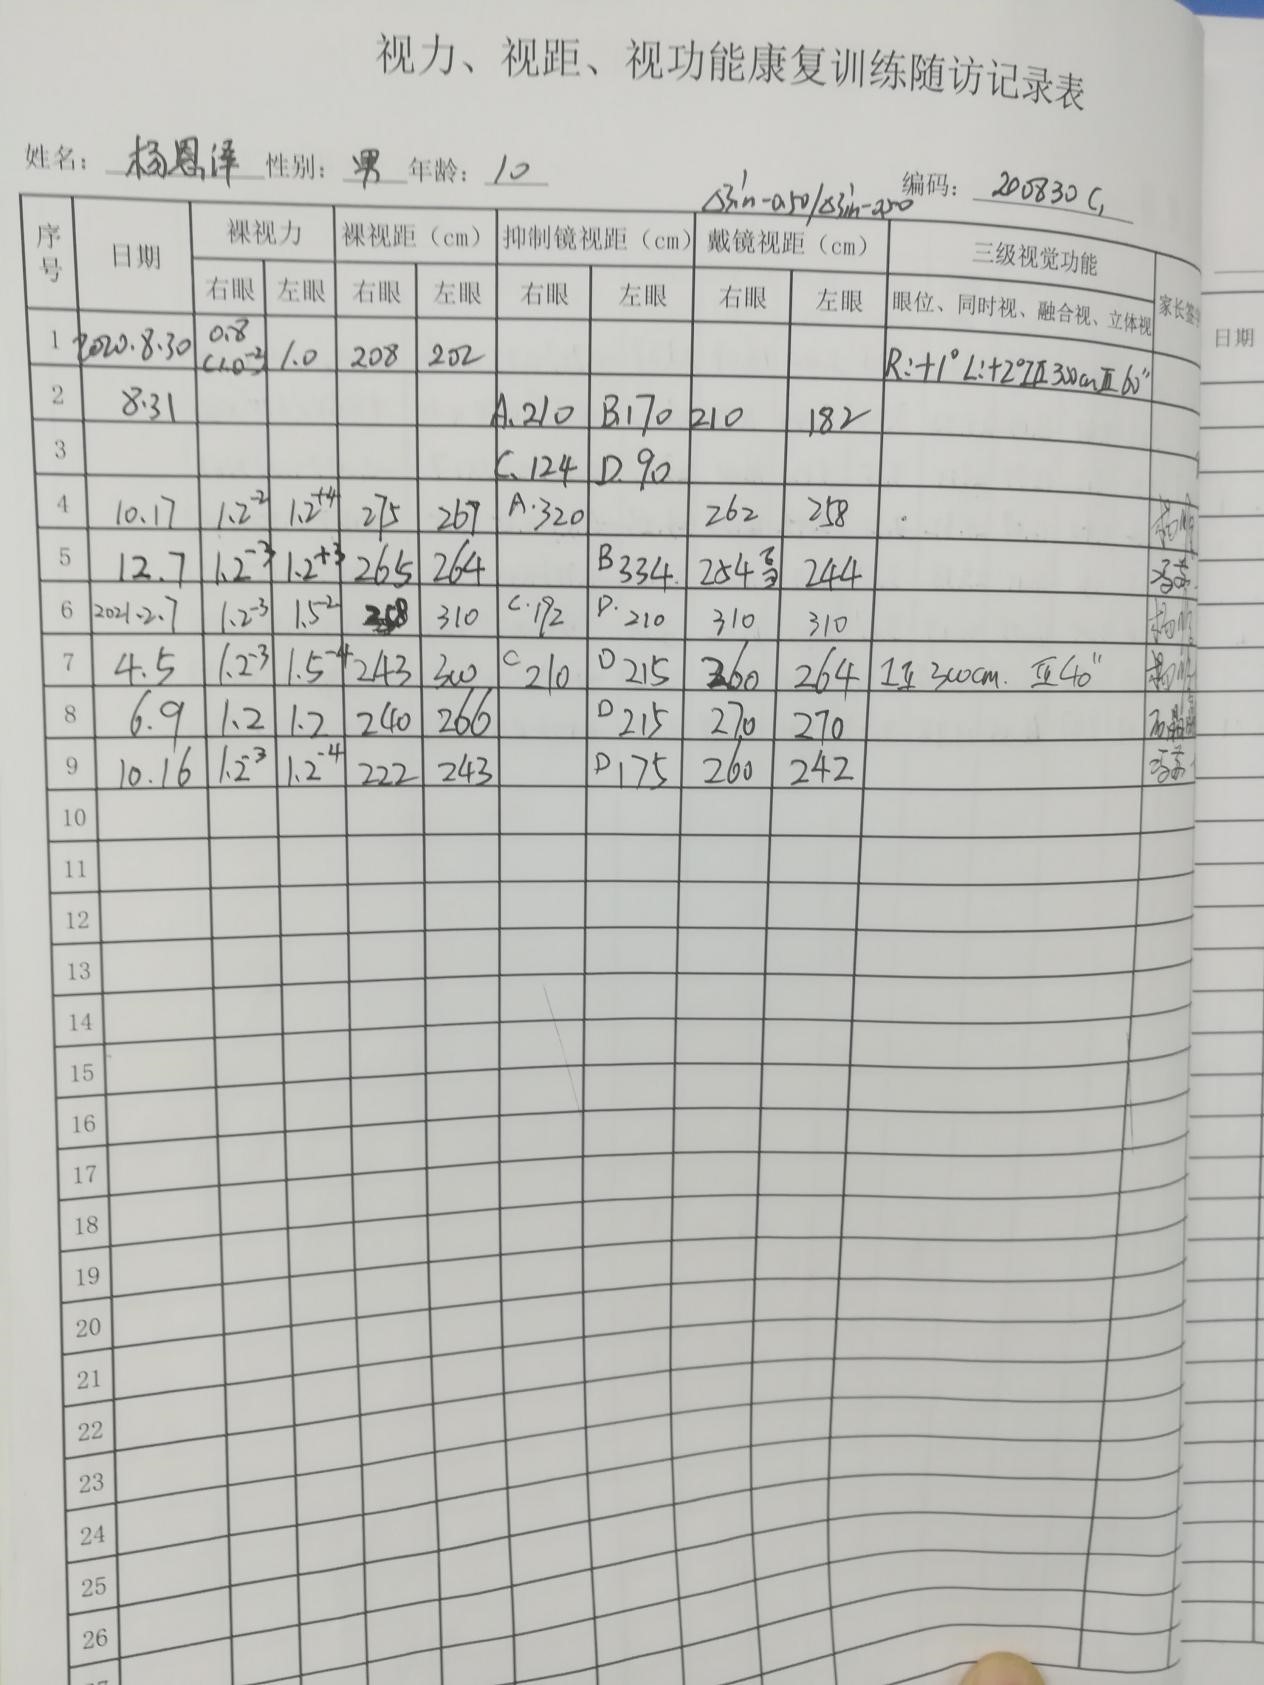 视力、视距、视功能康复训练随访记录表
姓名：杨恩泽 性别：男 年龄：10 编码：200830 C1
序号 日期 裸视力 裸视距（cm） 抑制镜视距（cm） 戴镜视距（cm） 三级视觉功能 家长签字
右眼 左眼 右眼 左眼 右眼 左眼 右眼 左眼 眼位、同时视、融合视、立体视
日期
1 2020.8.30 0.8 (1.0-2) 1.0 208 202 R:+1° L:+2° III 300cm III 60"
2 8.31 A.210 B.170 210 182
3 C.124 D.90
4 10.17 1.2-2 1.2+4 275 267 A.320 262 258
5 12.7 1.2-3 1.2+3 265 264 B 334 254 244
6 2021.2.7 1.2-3 1.5-2 258 310 C.192 D.210 310 310
7 4.5 1.2-3 1.5-4 243 300 C 210 D 215 260 264 I II 300cm. III 40"
8 6.9 1.2 1.2 240 266 D 215 270 270
9 10.16 1.2-3 1.2-4 222 243 D 175 260 242
10
11
12
13
14
15
16
17
18
19
20
21
22
23
24
25
26